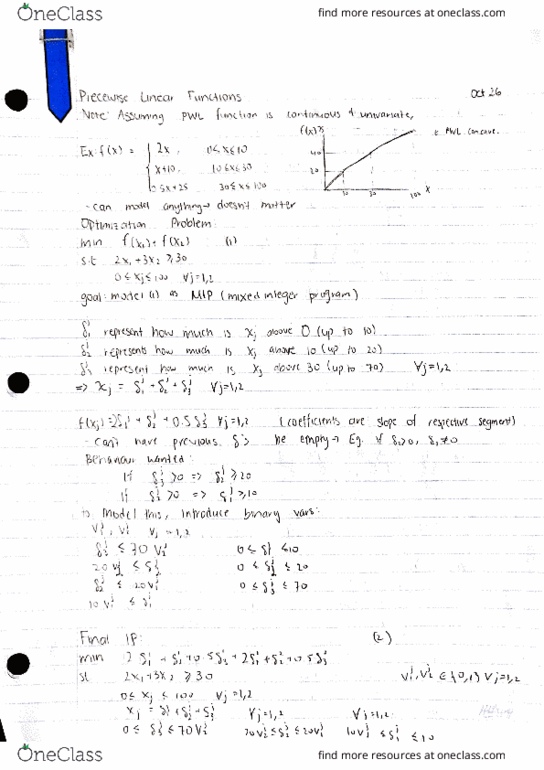 OneClass
find more resources at oneclass.com
Piecewise Linear Functions
Oct 26
Note: Assuming PWL function is continuous & univariate,
f(x)
Ex: f(x) = { 2x, 0≤x≤10
PWL concave.
x+10, 10≤x≤30
0.5x+25 30≤x≤100
40
20
10
30
100
x
- can model anything → doesn't matter
Optimization Problem:
min f(x₁) + f(x₂) (1)
s.t 2x₁+3x₂ ≥ 30
0 ≤ xj ≤ 100 ∀j=1,2
goal: model (1) as MIP (mixed integer program)
δ₁ʲ represent how much is xj above 0 (up to 10)
δ₂ʲ represents how much is xj above 10 (up to 20)
δ₃ʲ represent how much is xj above 30 (up to 70) ∀j=1,2
=> xj = δ₁ʲ + δ₂ʲ + δ₃ʲ ∀j=1,2
f(xj) = 2δ₁ʲ + δ₂ʲ + 0.5δ₃ʲ ∀j=1,2 (coefficients are slope of respective segment)
- Can't have previous δ's be empty → Eg. if δ₂>0, δ₁≠0
Behaviour wanted:
If δ₃ʲ >0 => δ₂ʲ ≥ 20
If δ₂ʲ >0 => δ₁ʲ ≥ 10
To Model this, introduce binary vars:
V₁ʲ, V₂ʲ ∀j=1,2
δ₃ʲ ≤ 70V₂ʲ 0 ≤ δ₁ʲ ≤ 10
20V₂ʲ ≤ δ₂ʲ 0 ≤ δ₂ʲ ≤ 20
δ₂ʲ ≤ 20V₁ʲ 0 ≤ δ₃ʲ ≤ 70
10V₁ʲ ≤ δ₁ʲ
Final IP: (2)
min 2δ₁¹ + δ₂¹ + 0.5δ₃¹ + 2δ₁² + δ₂² + 0.5δ₃²
st 2x₁+3x₂ ≥ 30
V₁ʲ, V₂ʲ ∈ {0,1} ∀j=1,2
0 ≤ xj ≤ 100 ∀j=1,2
xj = δ₁ʲ + δ₂ʲ + δ₃ʲ ∀j=1,2 ∀j=1,2
0 ≤ δ₃ʲ ≤ 70V₂ʲ 20V₂ʲ ≤ δ₂ʲ ≤ 20V₁ʲ 10V₁ʲ ≤ δ₁ʲ ≤ 10
OneClass
find more resources at oneclass.com